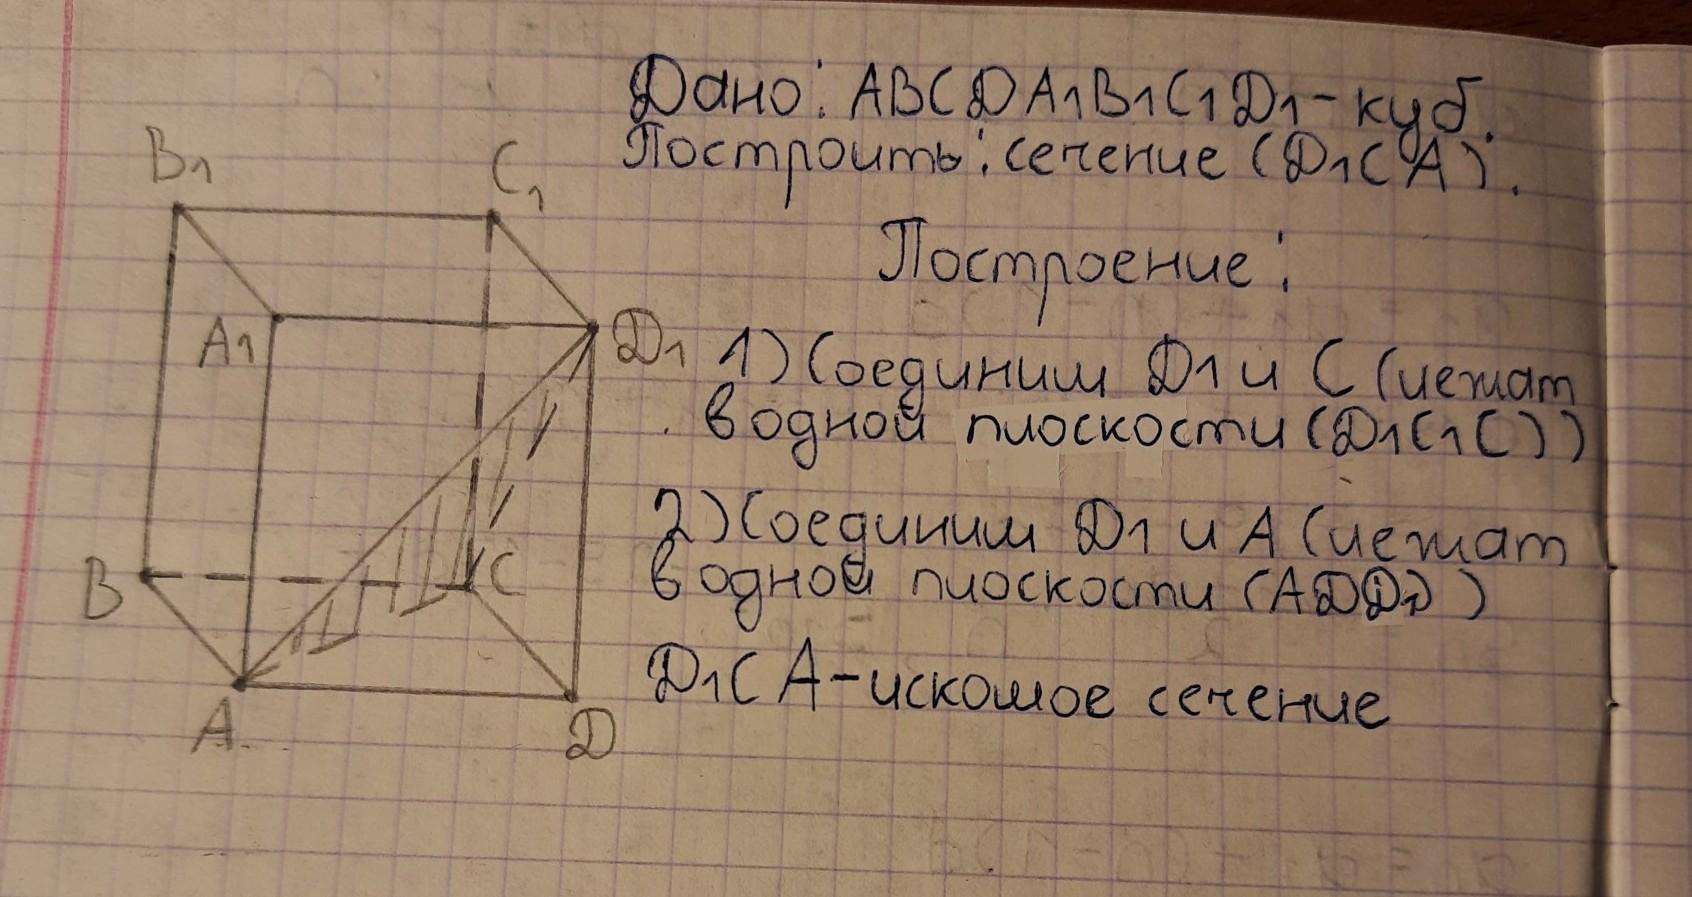 Дано: ABCDA1B1C1D1 - куб.
Построить: сечение (D1CA).
Построение:
1) Соединим D1 и C (лежат
в одной плоскости (D1C1C))
2) Соединим D1 и A (лежат
в одной плоскости (ADD1))
D1CA - искомое сечение
B1
C1
A1
D1
B
C
A
D